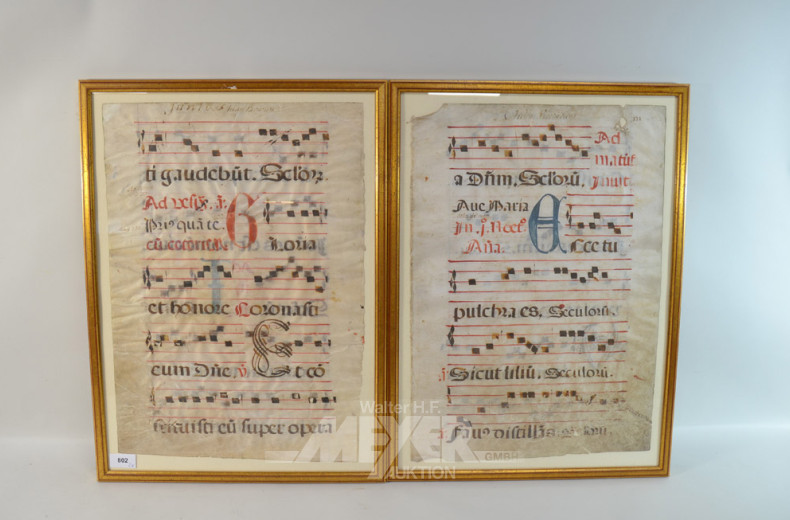 ti gaudebũt. Sclorz.
Ad vesp̃. ỹ.
Priº quã te.
cũ
G
Loria
et honore Coronasti
eum Dñe. ỹ
E
t cõ
stituisti eũ super opera
602
Ad
matut̃
a Dñm. Sclorũ.
Inuit.
Aue Maria
In. j. Noct̃º
Aña.
E
Cce tu
pulchra es. Seculorũ.
Sicut liliũ. Seculorũ.
Fauº distillãs
Walter H.F.
MEYER
AUKTION
GMBH